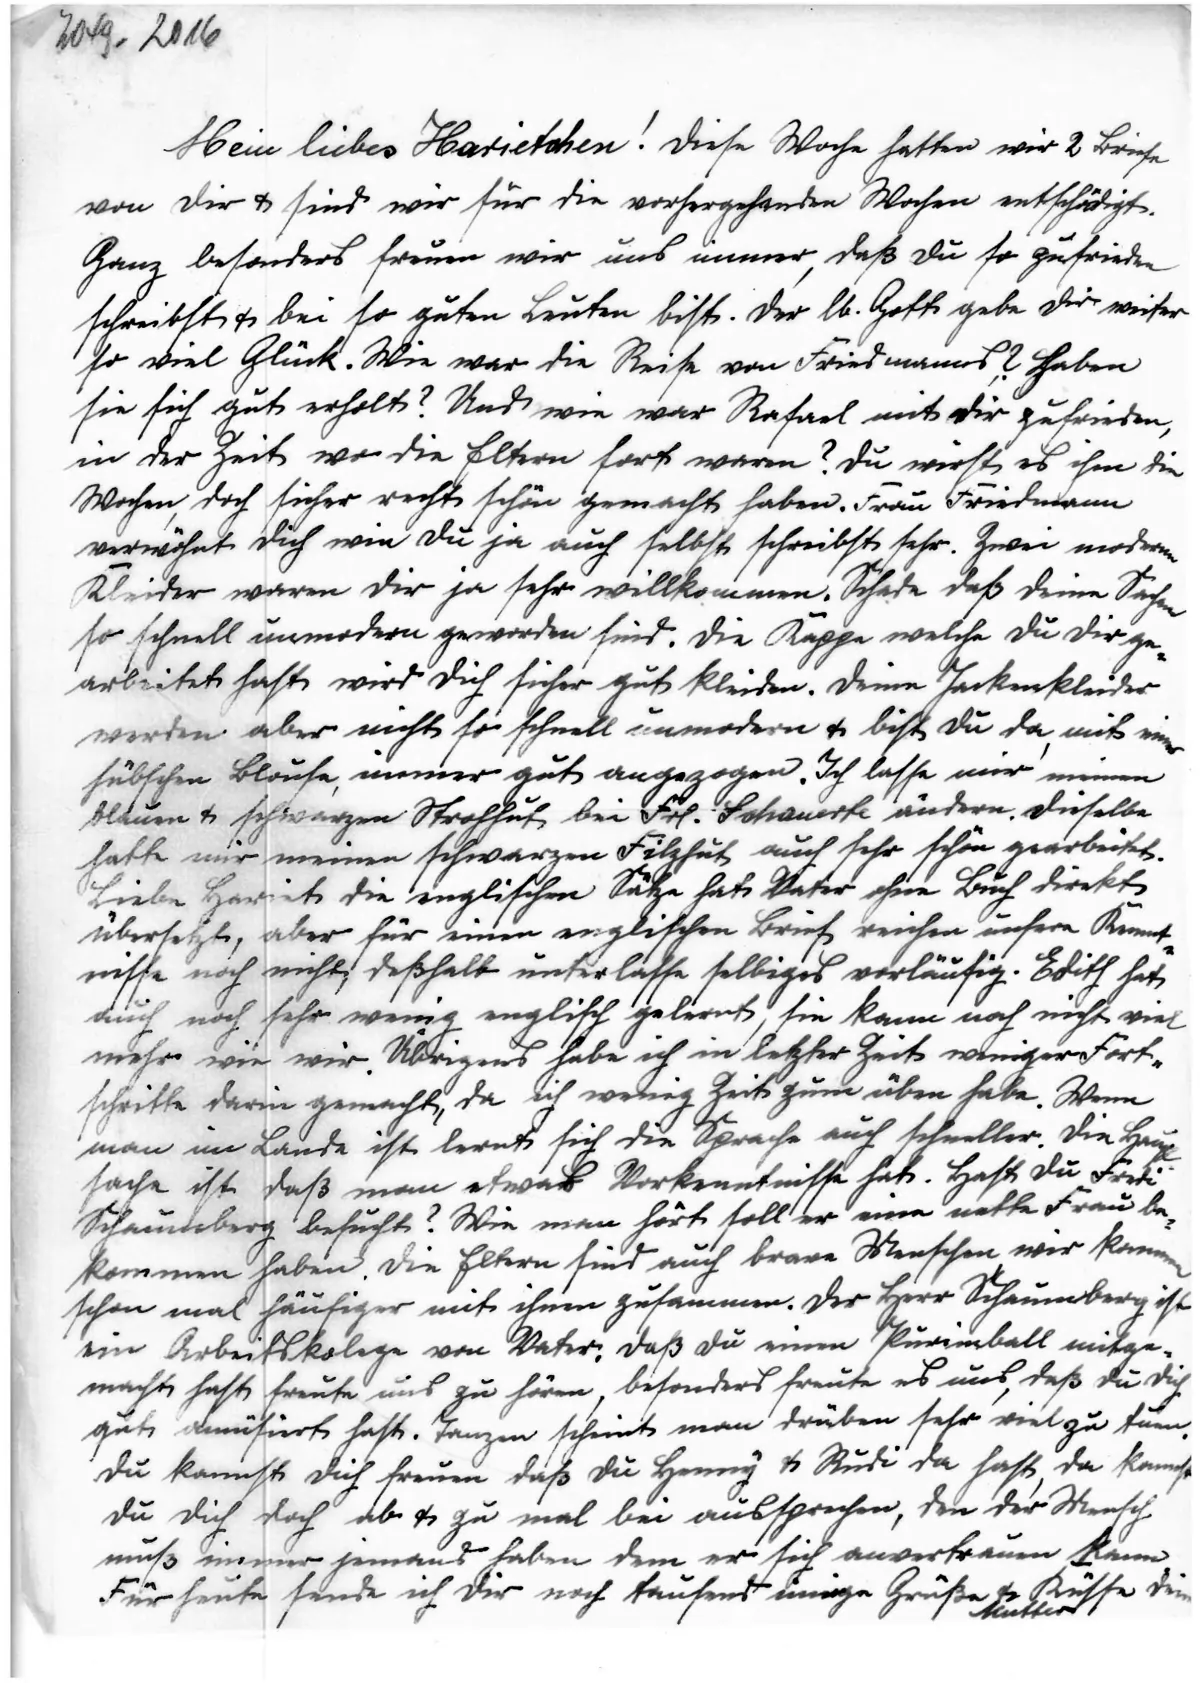 2049. 2016
Mein liebes Harietchen! Diese Woche hatten wir 2 Briefe
von Dir & sind wir für die vorhergehenden Wochen entschädigt.
Ganz besonders freuen wir uns immer, daß Du so zufrieden
schreibst & bei so guten Leuten bist. Der lb. Gott gebe Dir weiter
so viel Glück. Wie war die Reise von Friedmanns? Haben
sie sich gut erholt? Und wie war Rafael mit Dir zufrieden,
in der Zeit wo die Eltern fort waren? Du wirst es ihm die
Wochen, doch sicher recht schön gemacht haben. Frau Friedmann
verwöhnt Dich wie Du ja auch selbst schreibst sehr. Zwei moderne
Kleider waren Dir ja sehr willkommen. Schade daß deine Sachen
so schnell unmodern geworden sind. Die Kappe welche Du Dir ge-
arbeitet hast wird Dich sicher gut kleiden. Deine Jackenkleider
werden aber nicht so schnell unmodern & bist Du da, mit einer
hübschen Blouse, immer gut angezogen. Ich lasse mir meinen
blauen & schwarzen Strohhut bei Frl. ändern. Dieselbe
hatte mir meinen schwarzen Filzhut auch sehr schön gearbeitet.
Liebe Hariet die englischen Sätze hat Vater ohne Buch direkt
übersetzt, aber für einen englischen Brief reichen unsere Kennt-
nisse noch nicht, deßhalb unterlasse selbiges vorläufig. Edith hat
auch noch sehr wenig englisch gelernt, sie kann noch nicht viel
mehr wie wir. Übrigens habe ich in letzter Zeit weniger Fort-
schritte darin gemacht, da ich wenig Zeit zum üben habe. Wenn
man im Lande ist lernt sich die Sprache auch schneller. Die Haupt-
sache ist daß man etwas Vorkenntnisse hat. Hast Du Fredi
Schaumberg besucht? Wie man hört soll er eine nette Frau be-
kommen haben. Die Eltern sind auch brave Menschen wir kommen
schon mal häufiger mit ihnen zusammen. Der Herr Schaumberg ist
ein Arbeitskolege von Vater. Daß Du einen Purimball mitge-
macht hast freute uns zu hören, besonders freute es uns, daß Du Dich
gut amüsiert hast. Tanzen scheint man drüben sehr viel zu tuen.
Du kannst Dich freuen daß Du Henny & Rudi da hast, da kannst
Du Dich doch ab & zu mal bei aussprechen, den der Mensch
muß immer jemand haben dem er sich anvertrauen kann
Für heute sende ich Dir noch tausend innige Grüße & Küsse Deine
Mutter